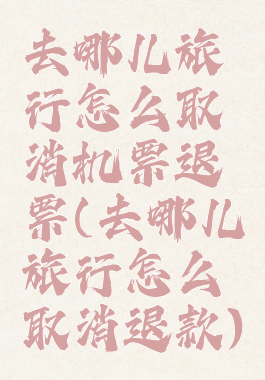 去哪儿旅
行怎么取
消机票退
票(去哪儿
旅行怎么
取消退款)